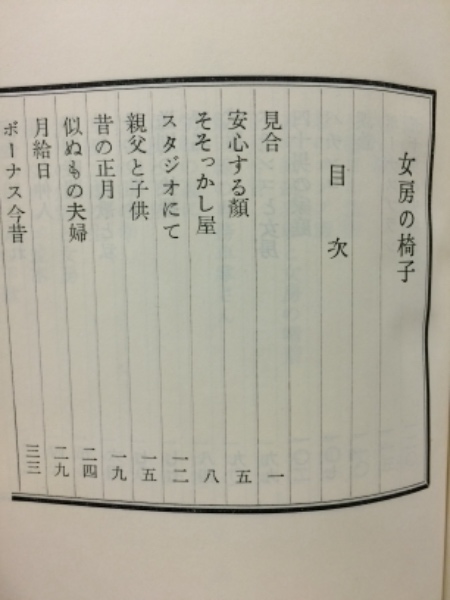 女房の椅子
目次
見合 一
安心する顔 五
そそっかし屋 八
スタジオにて 一二
親父と子供 一五
昔の正月 一九
似ぬもの夫婦 二四
月給日 二九
ボーナス今昔 三三